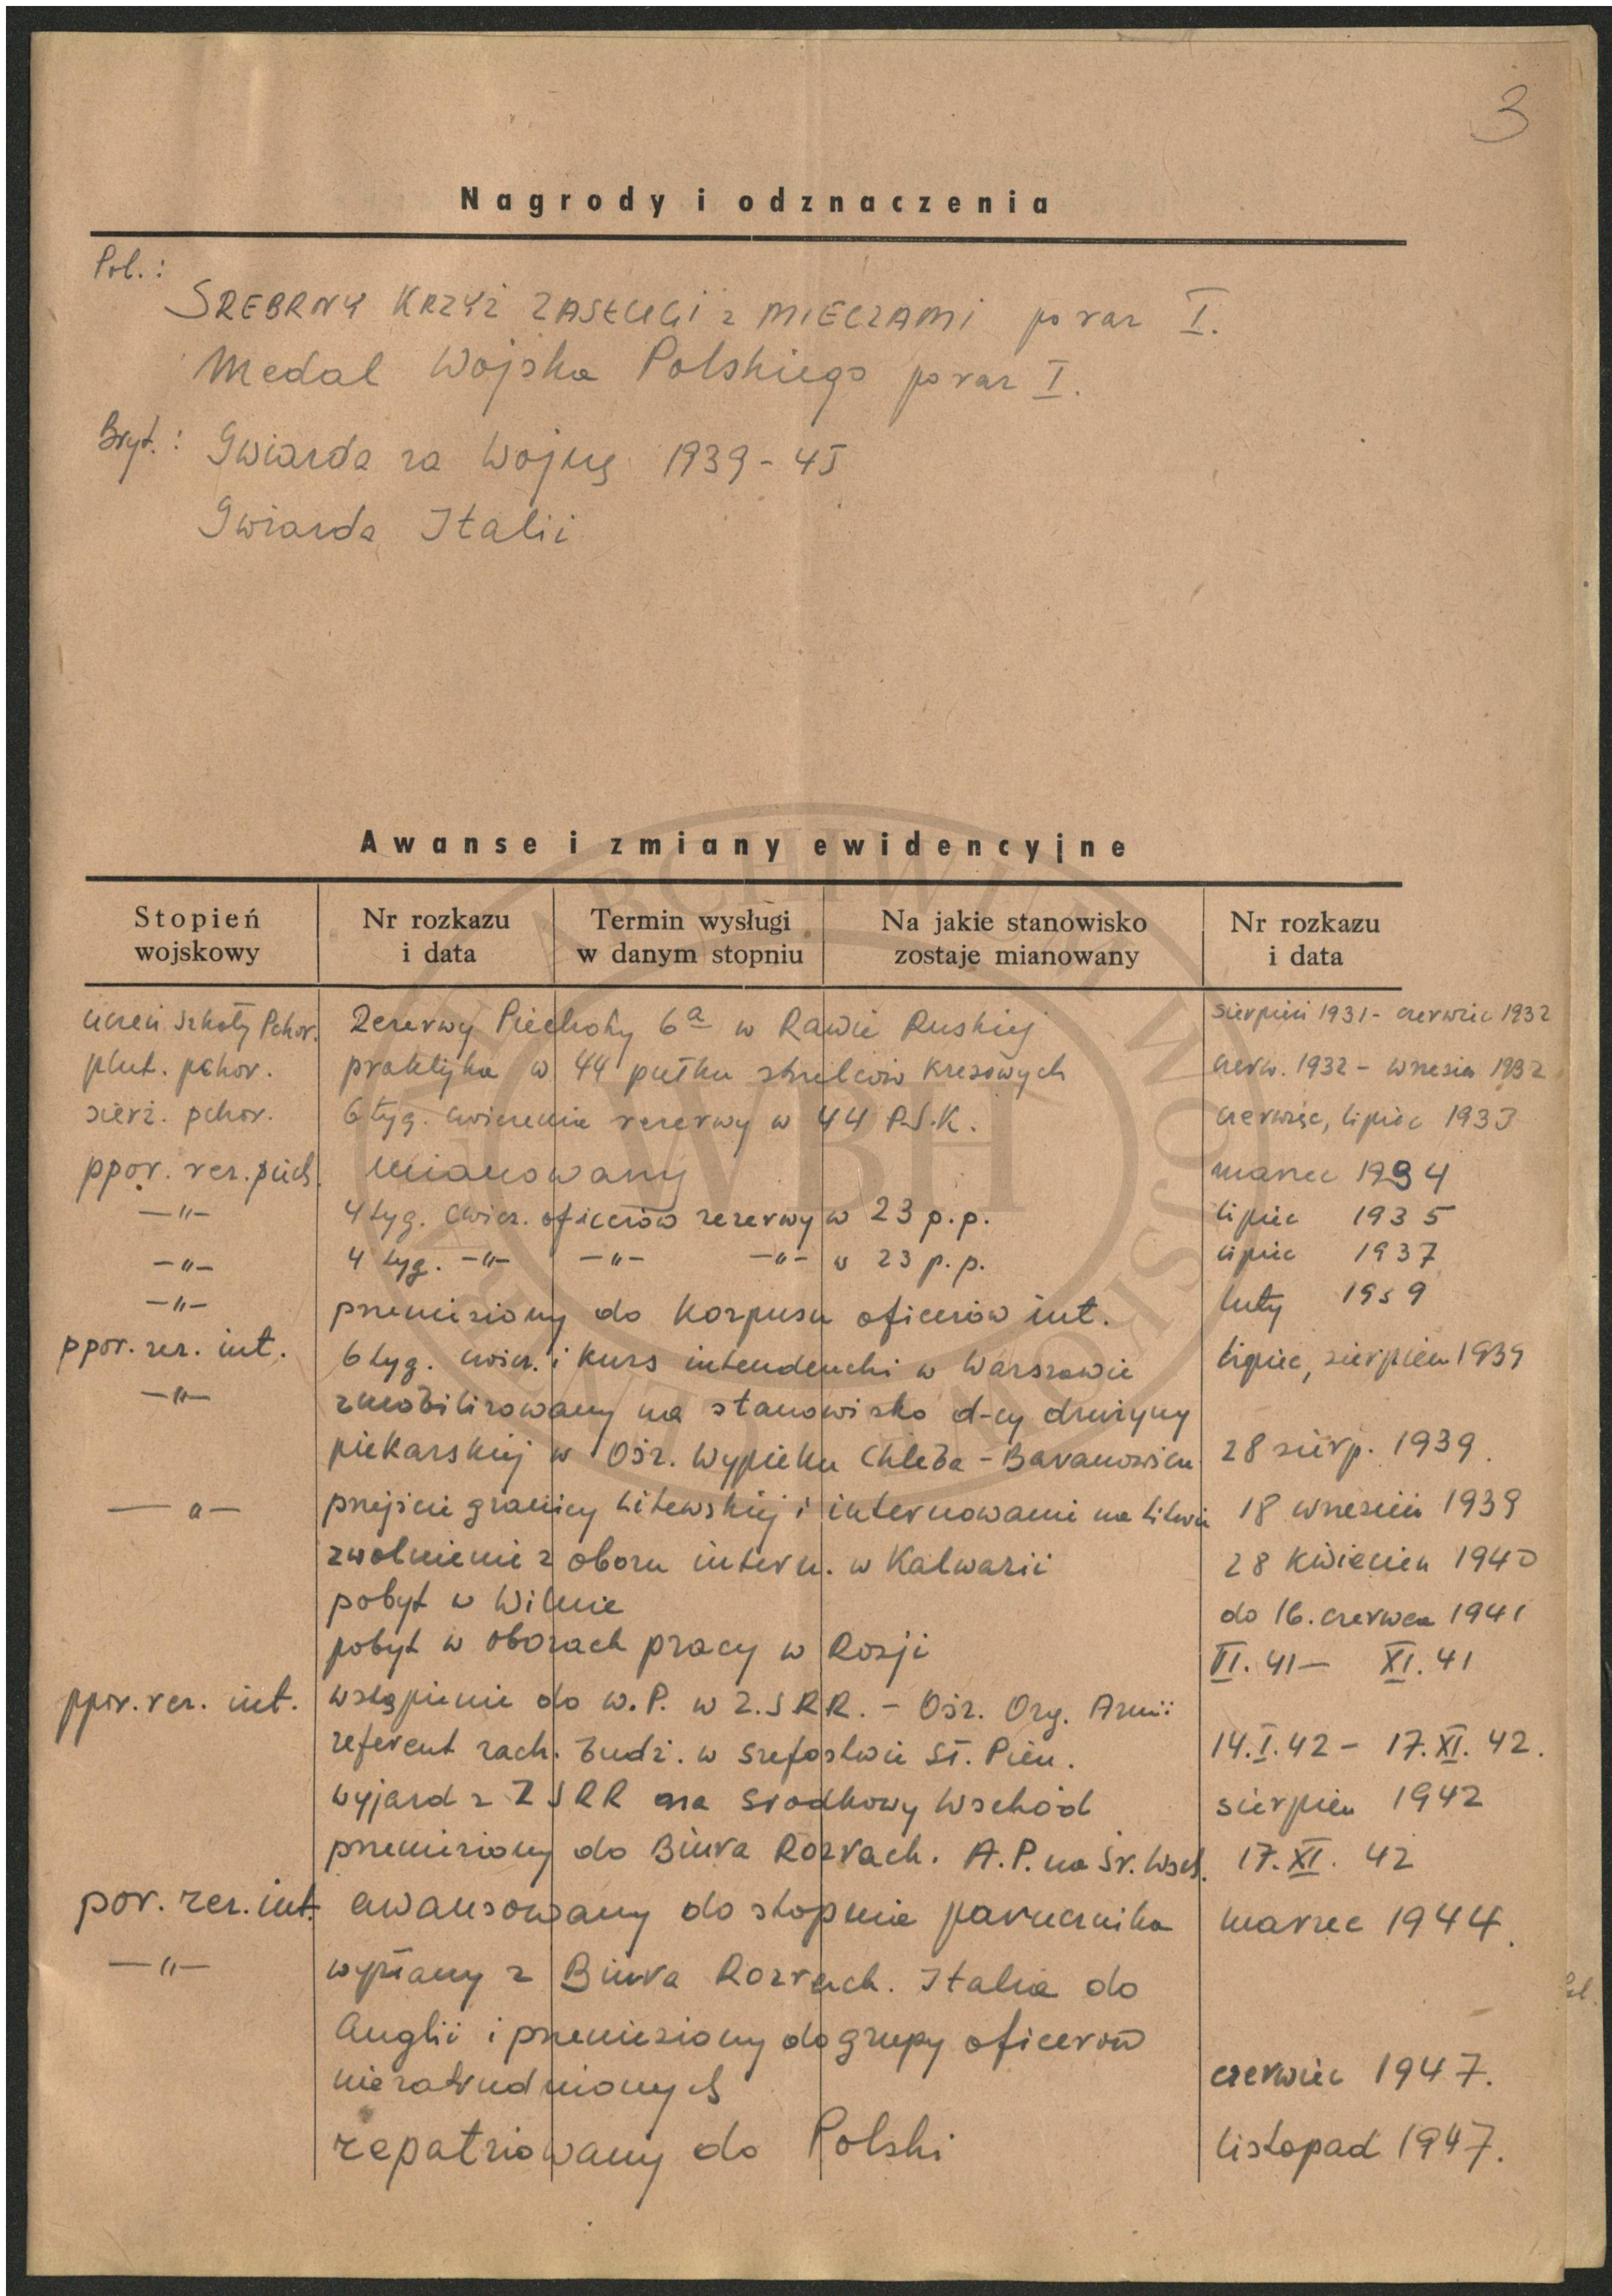 3
Nagrody i odznaczenia
Pol.:
SREBRNY KRZYŻ ZASŁUGI z MIECZAMI po raz I.
Medal Wojska Polskiego po raz I.
Bryt.: Gwiazda za Wojnę 1939-45
Gwiazda Italii
Awanse i zmiany ewidencyjne
Stopień wojskowy | Nr rozkazu i data | Termin wysługi w danym stopniu | Na jakie stanowisko zostaje mianowany | Nr rozkazu i data
uczeń Szkoły Pchor. Rezerwy Piechoty 6a w Rawie Ruskiej sierpień 1931 - czerwiec 1932
plut. pchor. praktyka w 44 pułku strzelców kresowych czerw. 1932 - wrzesień 1932
sierż. pchor. 6 tyg. ćwiczenia rezerwy w 44 P.S.K. czerwiec, lipiec 1933
ppor. rez. piech. mianowany marzec 1934
—"— 4 tyg. ćwicz. oficerów rezerwy w 23 p.p. lipiec 1935
—"— 4 tyg. —"— —"— —"— w 23 p.p. lipiec 1937
—"— przeniesiony do korpusu oficerów int. luty 1939
ppor. rez. int. 6 tyg. ćwicz. i kurs intendencki w Warszawie lipiec, sierpień 1939
—"— zmobilizowany na stanowisko d-cy drużyny
piekarskiej w Ośr. Wypieku Chleba - Baranowicze 28 sierp. 1939.
—"— przejście granicy litewskiej i internowanie na Litwie 18 wrzesień 1939
zwolnienie z obozu intern. w Kalwarii 28 kwiecień 1940
pobyt w Wilnie do 16. czerwca 1941
pobyt w obozach pracy w Rosji VI. 41 — XI. 41
ppor. rez. int. wstąpienie do W.P. w Z.S.R.R. - Ośr. Org. Armii
referent rach. budż. w szefostwie Sł. Pien. 14.I.42 - 17.XI.42.
wyjazd z ZSRR na Środkowy Wschód sierpień 1942
przeniesiony do Biura Rozrach. A.P. na Śr. Wsch. 17.XI.42
por. rez. int. awansowany do stopnia porucznika marzec 1944.
—"— wysłany z Biura Rozrach. Italia do
Anglii i przeniesiony do grupy oficerów
niezatrudnionych czerwiec 1947.
repatriowany do Polski listopad 1947.
WBH